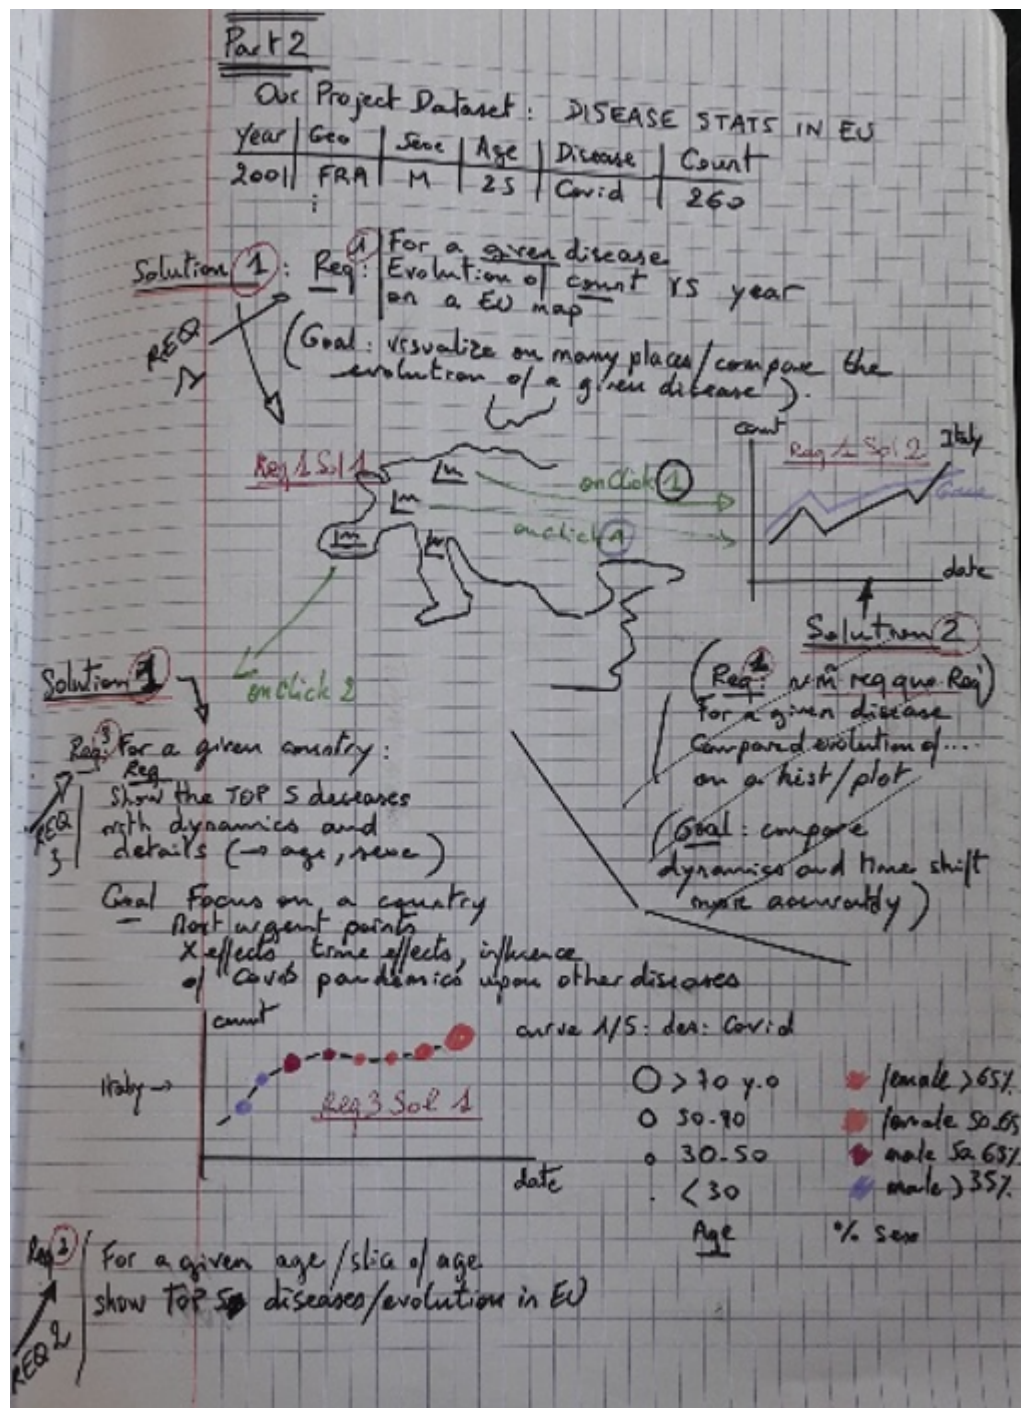 Part 2
Our Project Dataset : DISEASE STATS IN EU
Year | Geo | Sexe | Age | Disease | Count
2001 | FRA | M | 25 | Covid | 260
Solution 1 : Req 1 : For a given disease
Evolution of count vs year
on a EU map
REQ 1
(Goal : visualize on many places/compare the
evolution of a given disease).
Req 1 Sol 1
onClick 1
onClick 1
onClick 2
count
Req 1 Sol 2
Italy
date
Solution 2
(Req 1 : req que Req)
For a given disease
Compared evolution of....
on a hist/plot
(Goal : compare
dynamics and time shift
more accurately)
Solution 1
Req 3 : For a given country :
Req
REQ 3
Show the TOP 5 deseases
with dynamics and
details (→ age, sexe)
Goal Focus on a country
Most urgent points
X effects, time effects, influence
of Covid pandemics upon other diseases
count
curve 1/5 : des : Covid
Italy →
Req 3 Sol 1
date
> 70 y.o
30-50
< 30
Age
female > 65%
female 50-65
male 50-65%
male > 35%
% sexe
Req 2
For a given age/slice of age
show TOP 5 diseases/evolution in EU
REQ 2